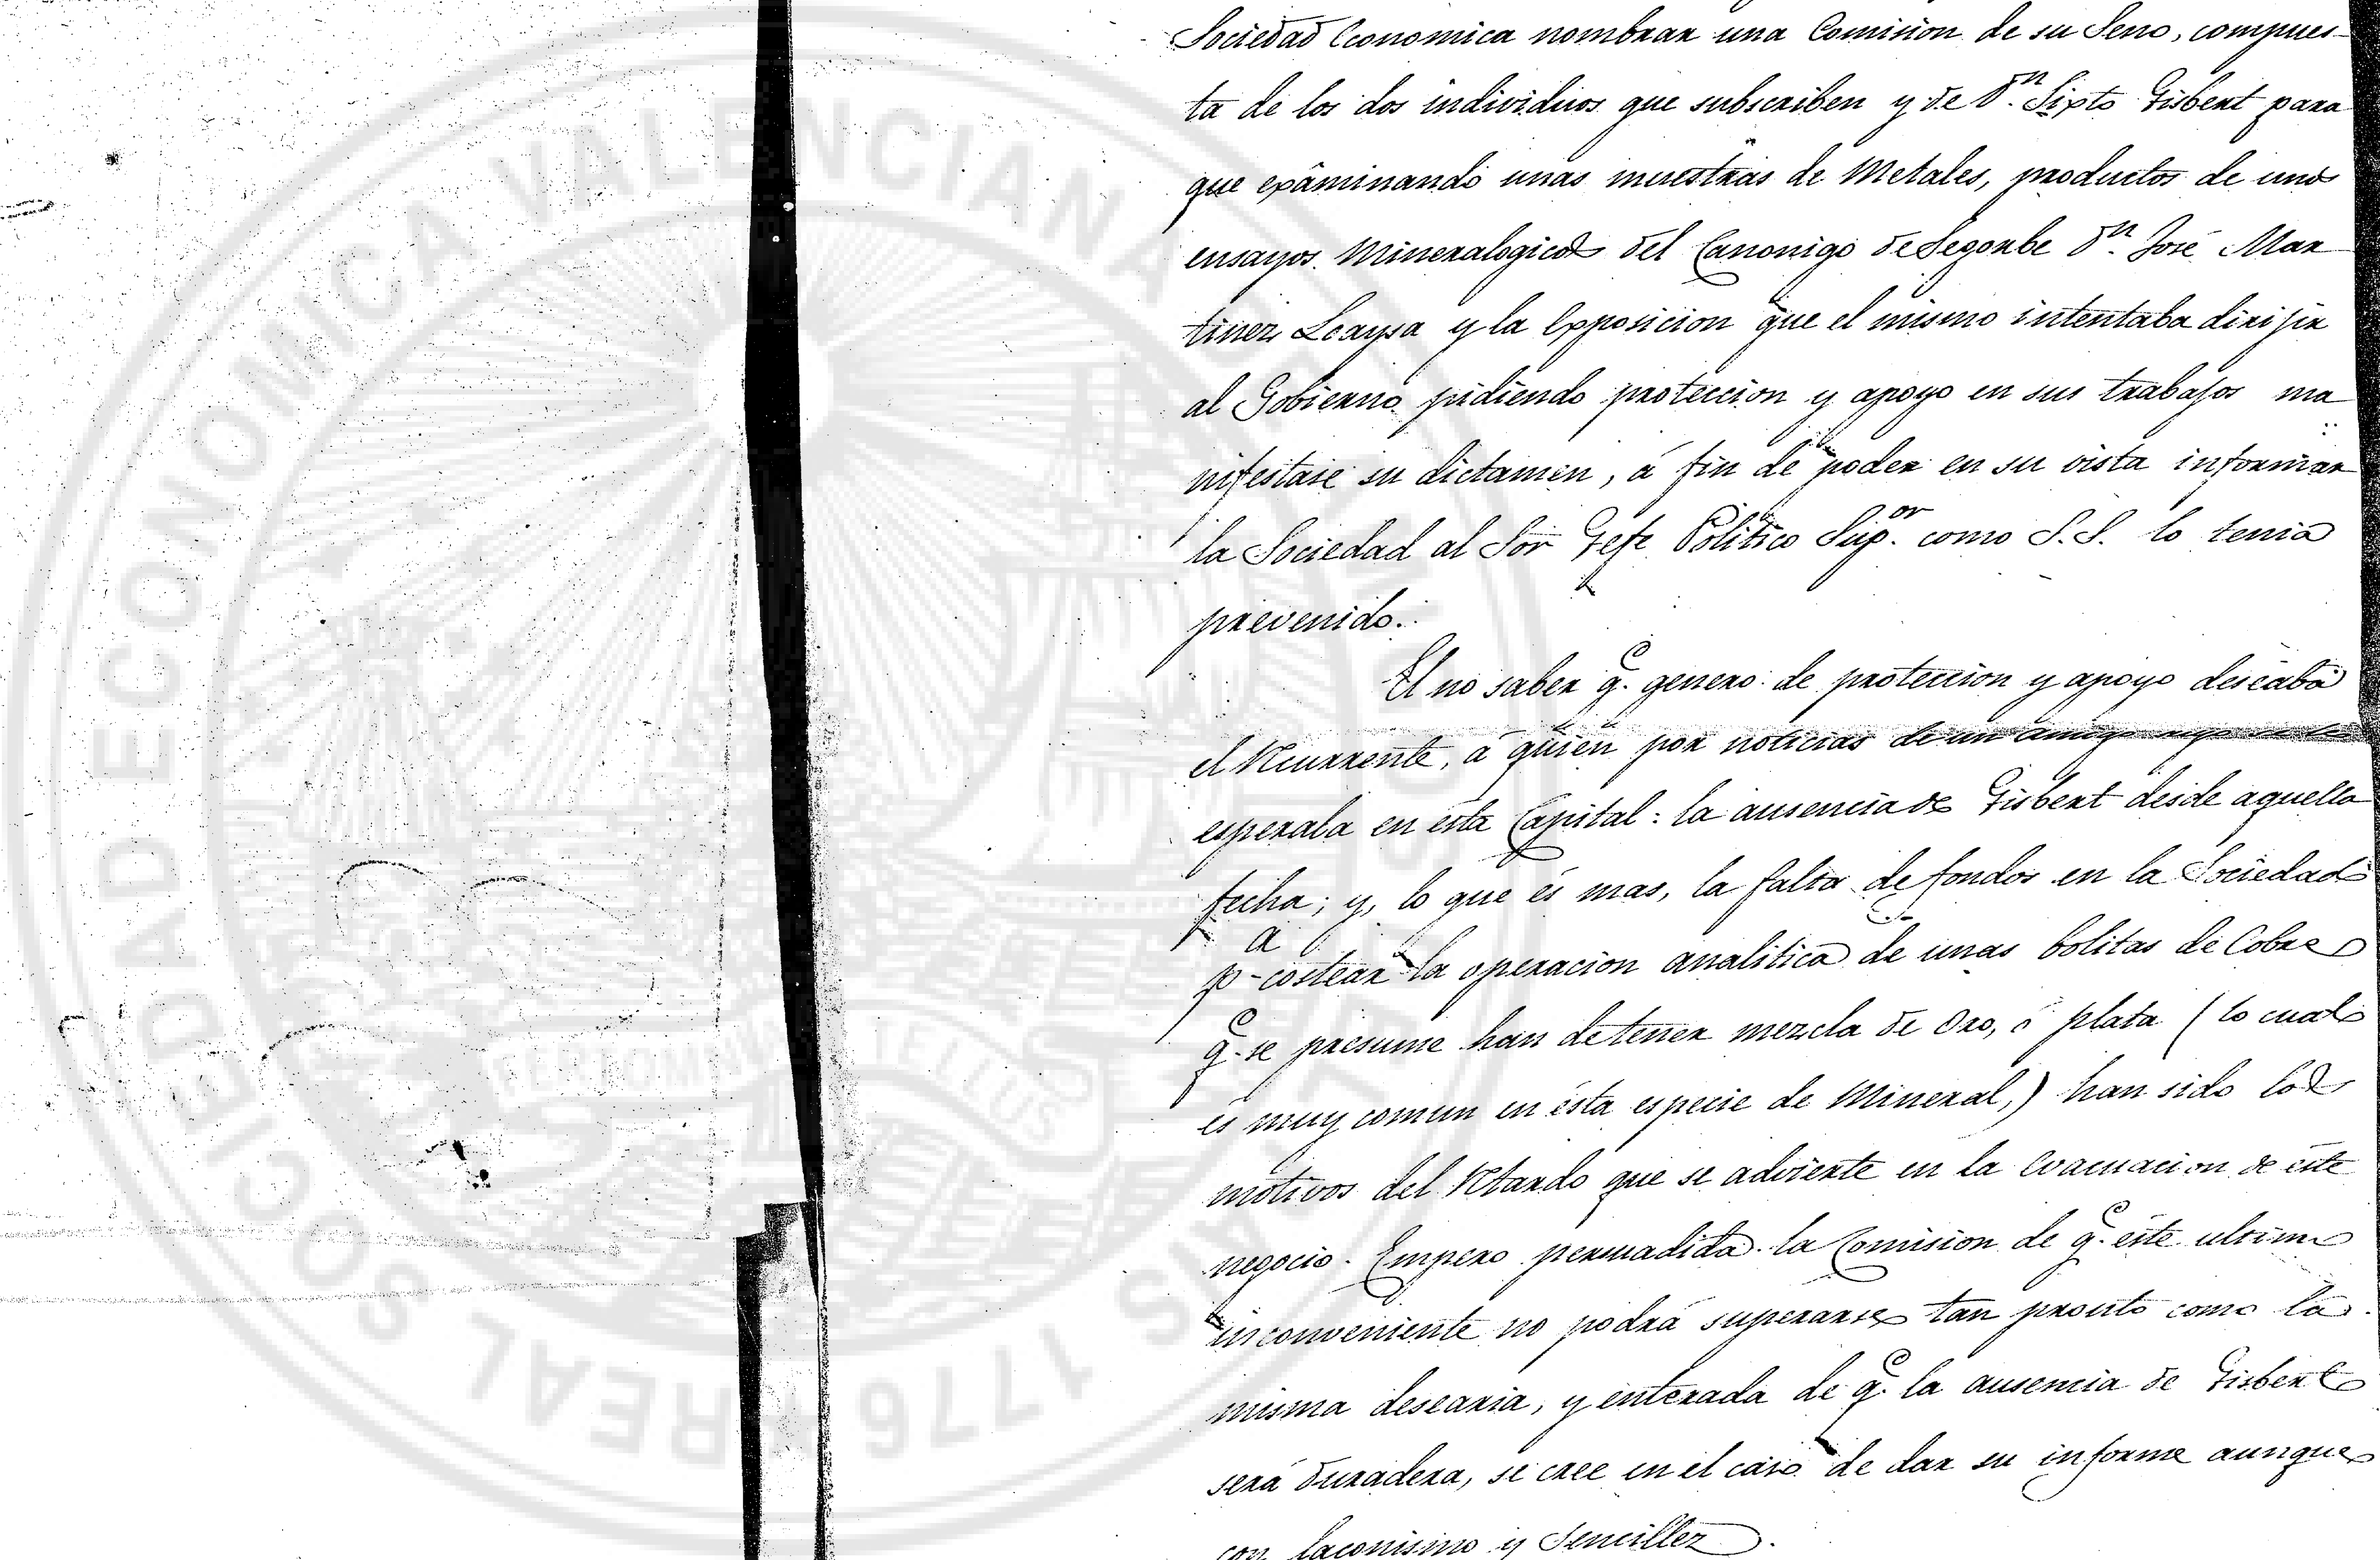 Sociedad Economica nombrar una Comision de su Seno, compues-
ta de los dos individuos que subscriben y de Dn. Sixto Gisbert para
que exâminando unas muestras de Metales, productos de unos
ensayos Mineralogicos del Canonigo de Segorbe Dn. José Mar
tinez Leaysa y la Exposicion que el mismo intentaba dirijir
al Gobierno pidiendo proteccion y apoyo en sus trabajos ma
nifestase su dictamen, á fin de poder en su vista informar
la Sociedad al Sor Gefe Politico Supor. como S.S. lo tenia
prevenido.
El no saber qe. genero de proteccion y apoyo deseaba
el Recurrente, á quien por noticias de un amigo
esperaba en esta Capital: la ausencia de Gisbert desde aquella
fecha; y, lo que es mas, la falta de fondos en la Sociedad
pa costear la operacion analitica de unas bolitas de Cobre
qe. se presume han de tener mezcla de Oro, ó plata (lo cual
es muy comun en esta especie de Mineral,) han sido los
motivos del Retardo que se advierte en la Evacuacion de este
negocio. Empero persuadida la Comision de qe. este ultimo
inconveniente no podrá superarse tan pronto como la
misma desearia, y enterada de qe. la ausencia de Gisbert
será duradera, se cree en el caso de dar su informe aunque
con laconismo y Sencillez.
SOCIEDAD ECONOMICA VALENCIANA
REAL
1776